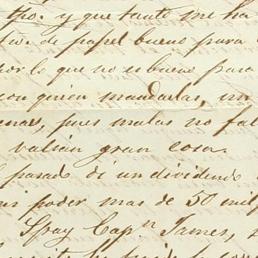 tpo. y que tanto me ha
de papel bueno para
por lo que no es bueno para
con quien mandarlas, un
pues malas no fal
valian gran cosa.
pasado di un dividendo
mi poder mas de 50 mil
Spray Capn James,